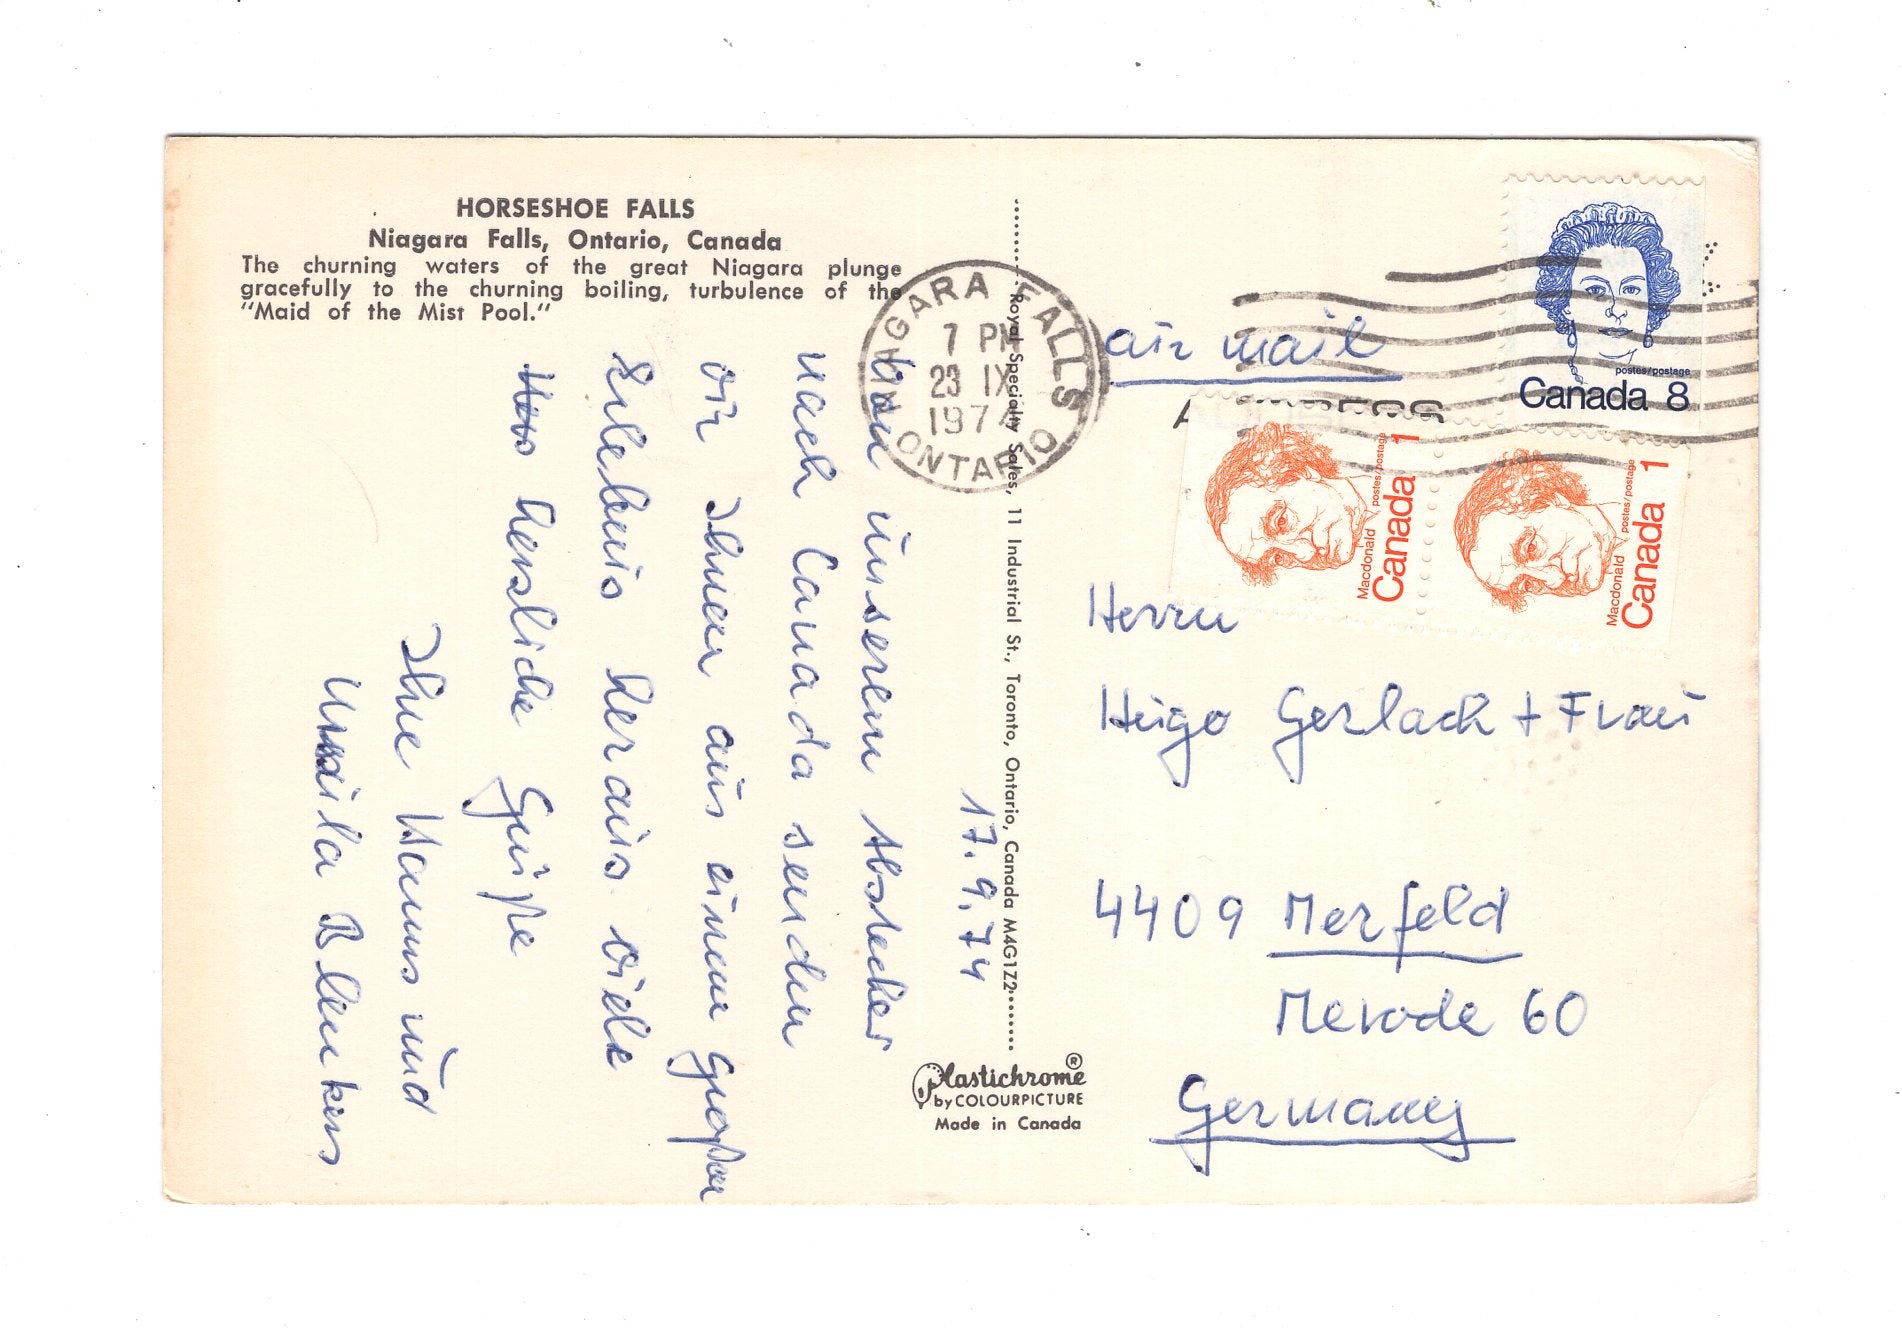 HORSESHOE FALLS
Niagara Falls, Ontario, Canada
The churning waters of the great Niagara plunge
gracefully to the churning boiling, turbulence of the
"Maid of the Mist Pool."
17.9.74
Von unserem Abstecher
nach Canada senden
wir Ihnen aus einem großen
Erlebnis heraus viele
herzliche Grüße
Ihre Hanns und
Ursula Blenkers
Royal Specialty Sales, 11 Industrial St., Toronto, Ontario, Canada M4G1Z2
Plastichrome®
by COLOURPICTURE
Made in Canada
NIAGARA FALLS
7 PM
23 IX
1974
ONTARIO
air mail
postes/postage
Canada 8
Macdonald postes/postage
Canada 1
Macdonald postes/postage
Canada 1
Herrn
Hugo Gerlach + Frau
4409 Merfeld
Merode 60
Germany